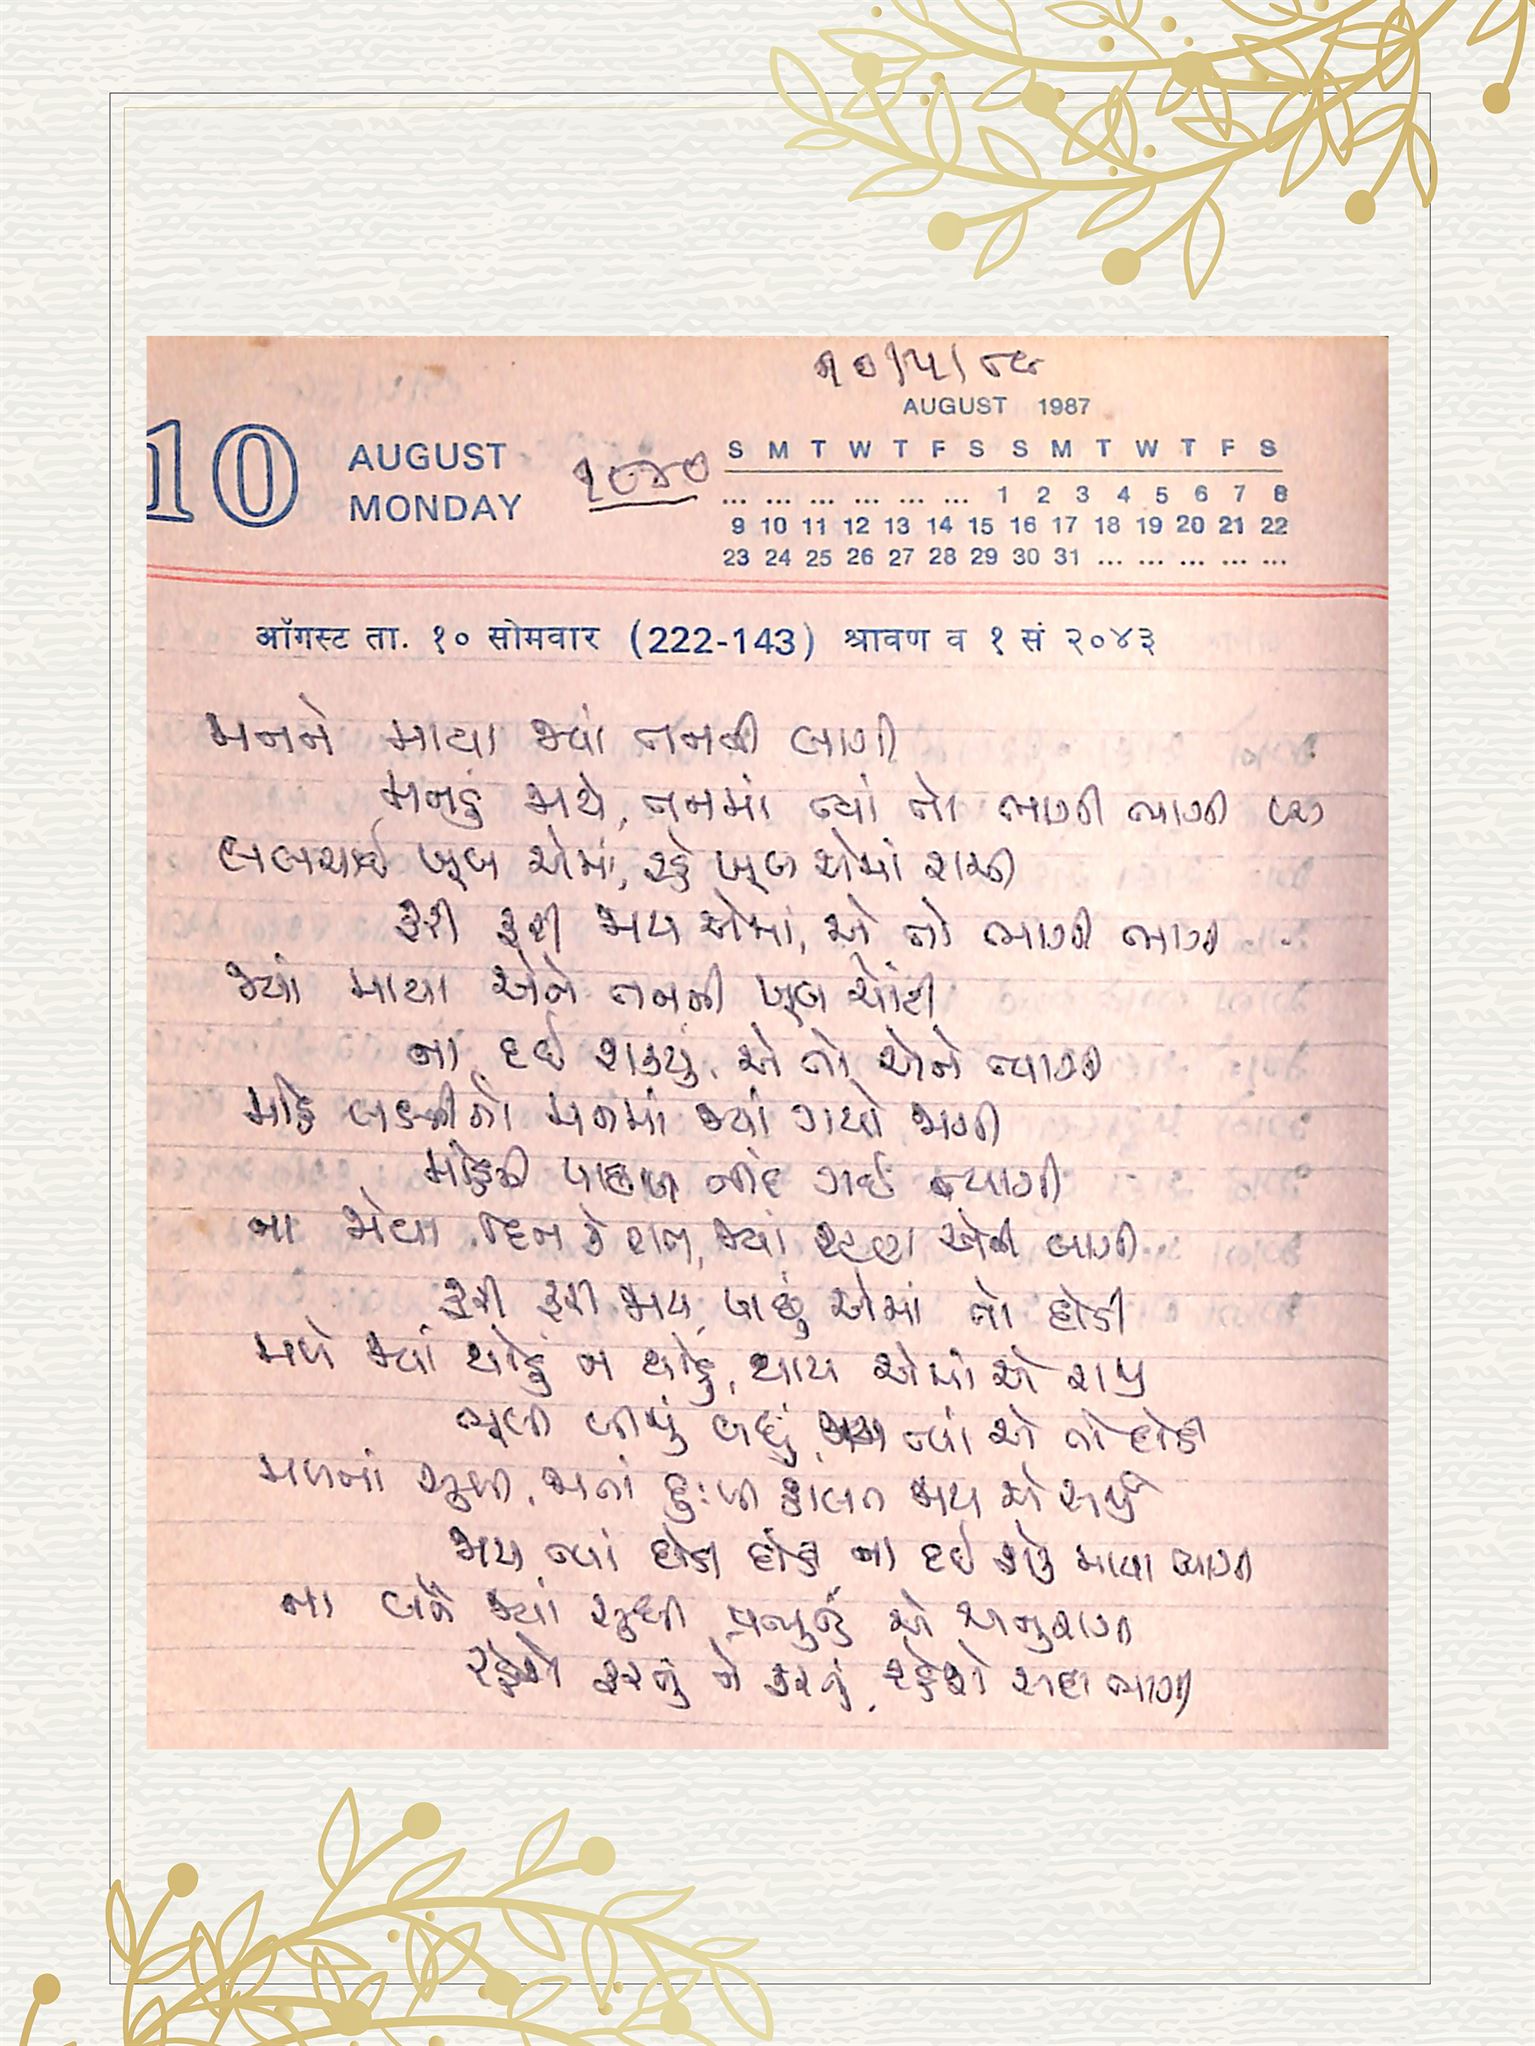 ૧૦/૫/૮૯
AUGUST 1987
10 AUGUST
MONDAY
૧૮૪૦
S M T W T F S S M T W T F S
... ... ... ... ... ... 1 2 3 4 5 6 7 8
9 10 11 12 13 14 15 16 17 18 19 20 21 22
23 24 25 26 27 28 29 30 31 ... ... ... ... ...
ऑगस्ट ता. १० सोमवार (222-143) श्रावण व १ सं २०४३
મનને માયા જ્યાં તનની લાગી
મનડું જાયે, તનમાં ત્યાં તો ભાગી ભાગી
લલચાઈ ખૂબ એમાં, રહે ખૂબ એમાં રાજી
ફરી ફરી જાય એમાં, એ તો ભાગી ભાગી
જ્યાં માયા એને તનની ખૂબ ચોંટી
ના દઈ શક્યું, એ તો એને ત્યાગી
મોહ લક્ષ્મીનો મનમાં જ્યાં ગયો જાગી
મોહની પાછળ નીંદ ગઈ ત્યાગી
ના જોયા દિન કે રાત, જ્યાં રટણ એની લાગી
ફરી ફરી જાય પાછું એમાં તો દોડી
મળે જ્યાં થોડું ન થોડું, થાય એમાં એ રાજી
ભૂલી બીજું બધું, જાય ત્યાં એ તો દોડી
મળતાં સુખ, જાતાં દુઃખ જાય એ
જાય ત્યાં દોડી દોડી ના દઈ શકે માયા ત્યાગી
ના બને જ્યાં સુધી પ્રભુનું એ અનુરાગી
રહેશે ફરતું ને ફરતું, રહેશે સદા ભાગી